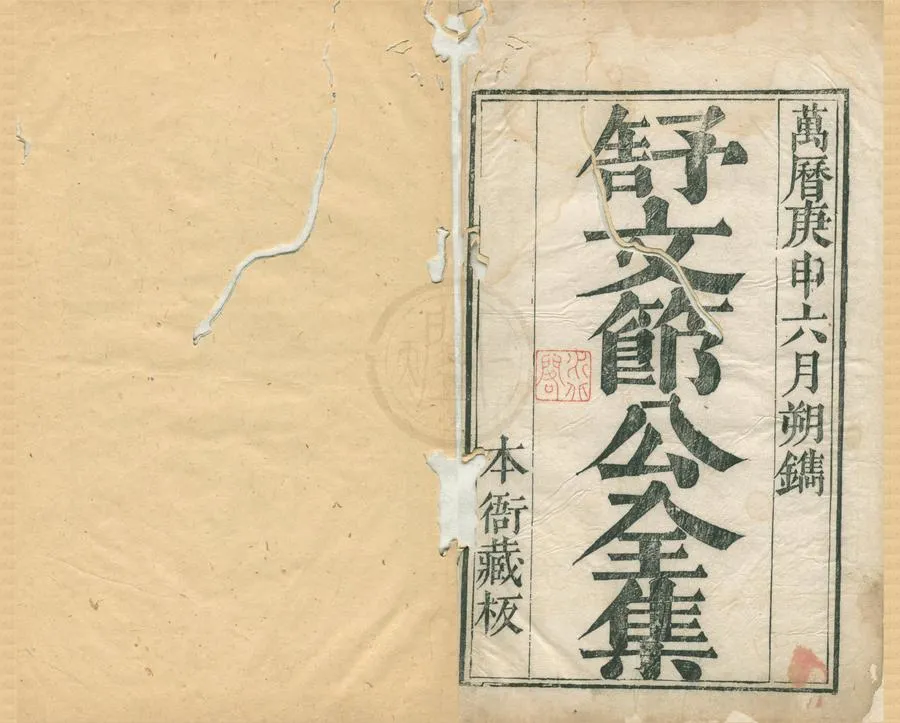 萬曆庚申六月朔鐫
舒文節公全集
本衙藏板